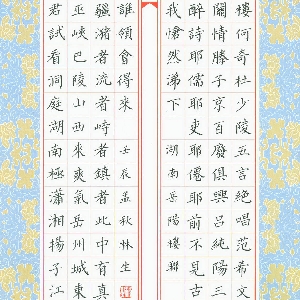 樓何奇杜少陵五言絕唱范希文
關情滕子京百廢俱興呂純陽三
醉詩耶儒耶吏耶僊耶前不見古
我愴然涕下
湖南岳陽樓聯
君試看洞庭湖南極瀟湘揚子江
巫峽巴陵山西來爽氣岳州城東
疆瀦者流者峙者鎮者此中有真
誰領會得來
壬辰孟秋林生